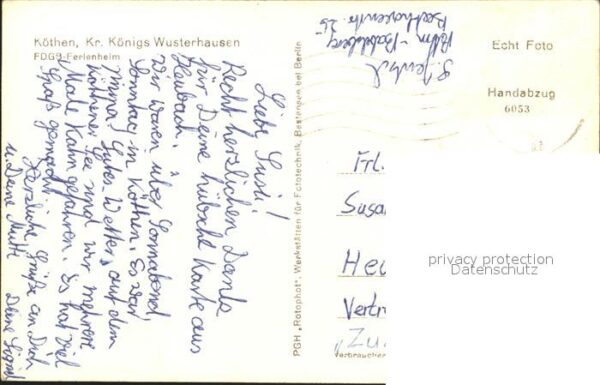 Köthen, Kr. Königs Wusterhausen
FDGB-Ferienheim
Liebe Susi!
Recht herzlichen Dank
für Deine hübsche Karte aus
Heubach.
Wir waren über Sonnabend
Sonntag in Köthen. Es war
prima! Gutes Wetter, auf dem
Köthener See sind wir mehrere
Male Kahn gefahren. Es hat viel
Spaß gemacht.
Herzliche Grüße an Dich
u. Deine Mutti Deine Sigrid
PGH „Rotophot", Werkstätten für Fototechnik, Bestensee bei Berlin
S.
Pdm-Babelsberg
Beethovenstr. 25
Echt Foto
Handabzug
6053
Frl.
Susa
Heu
Vertr
"Zu
Verbraucher
privacy protection
Datenschutz